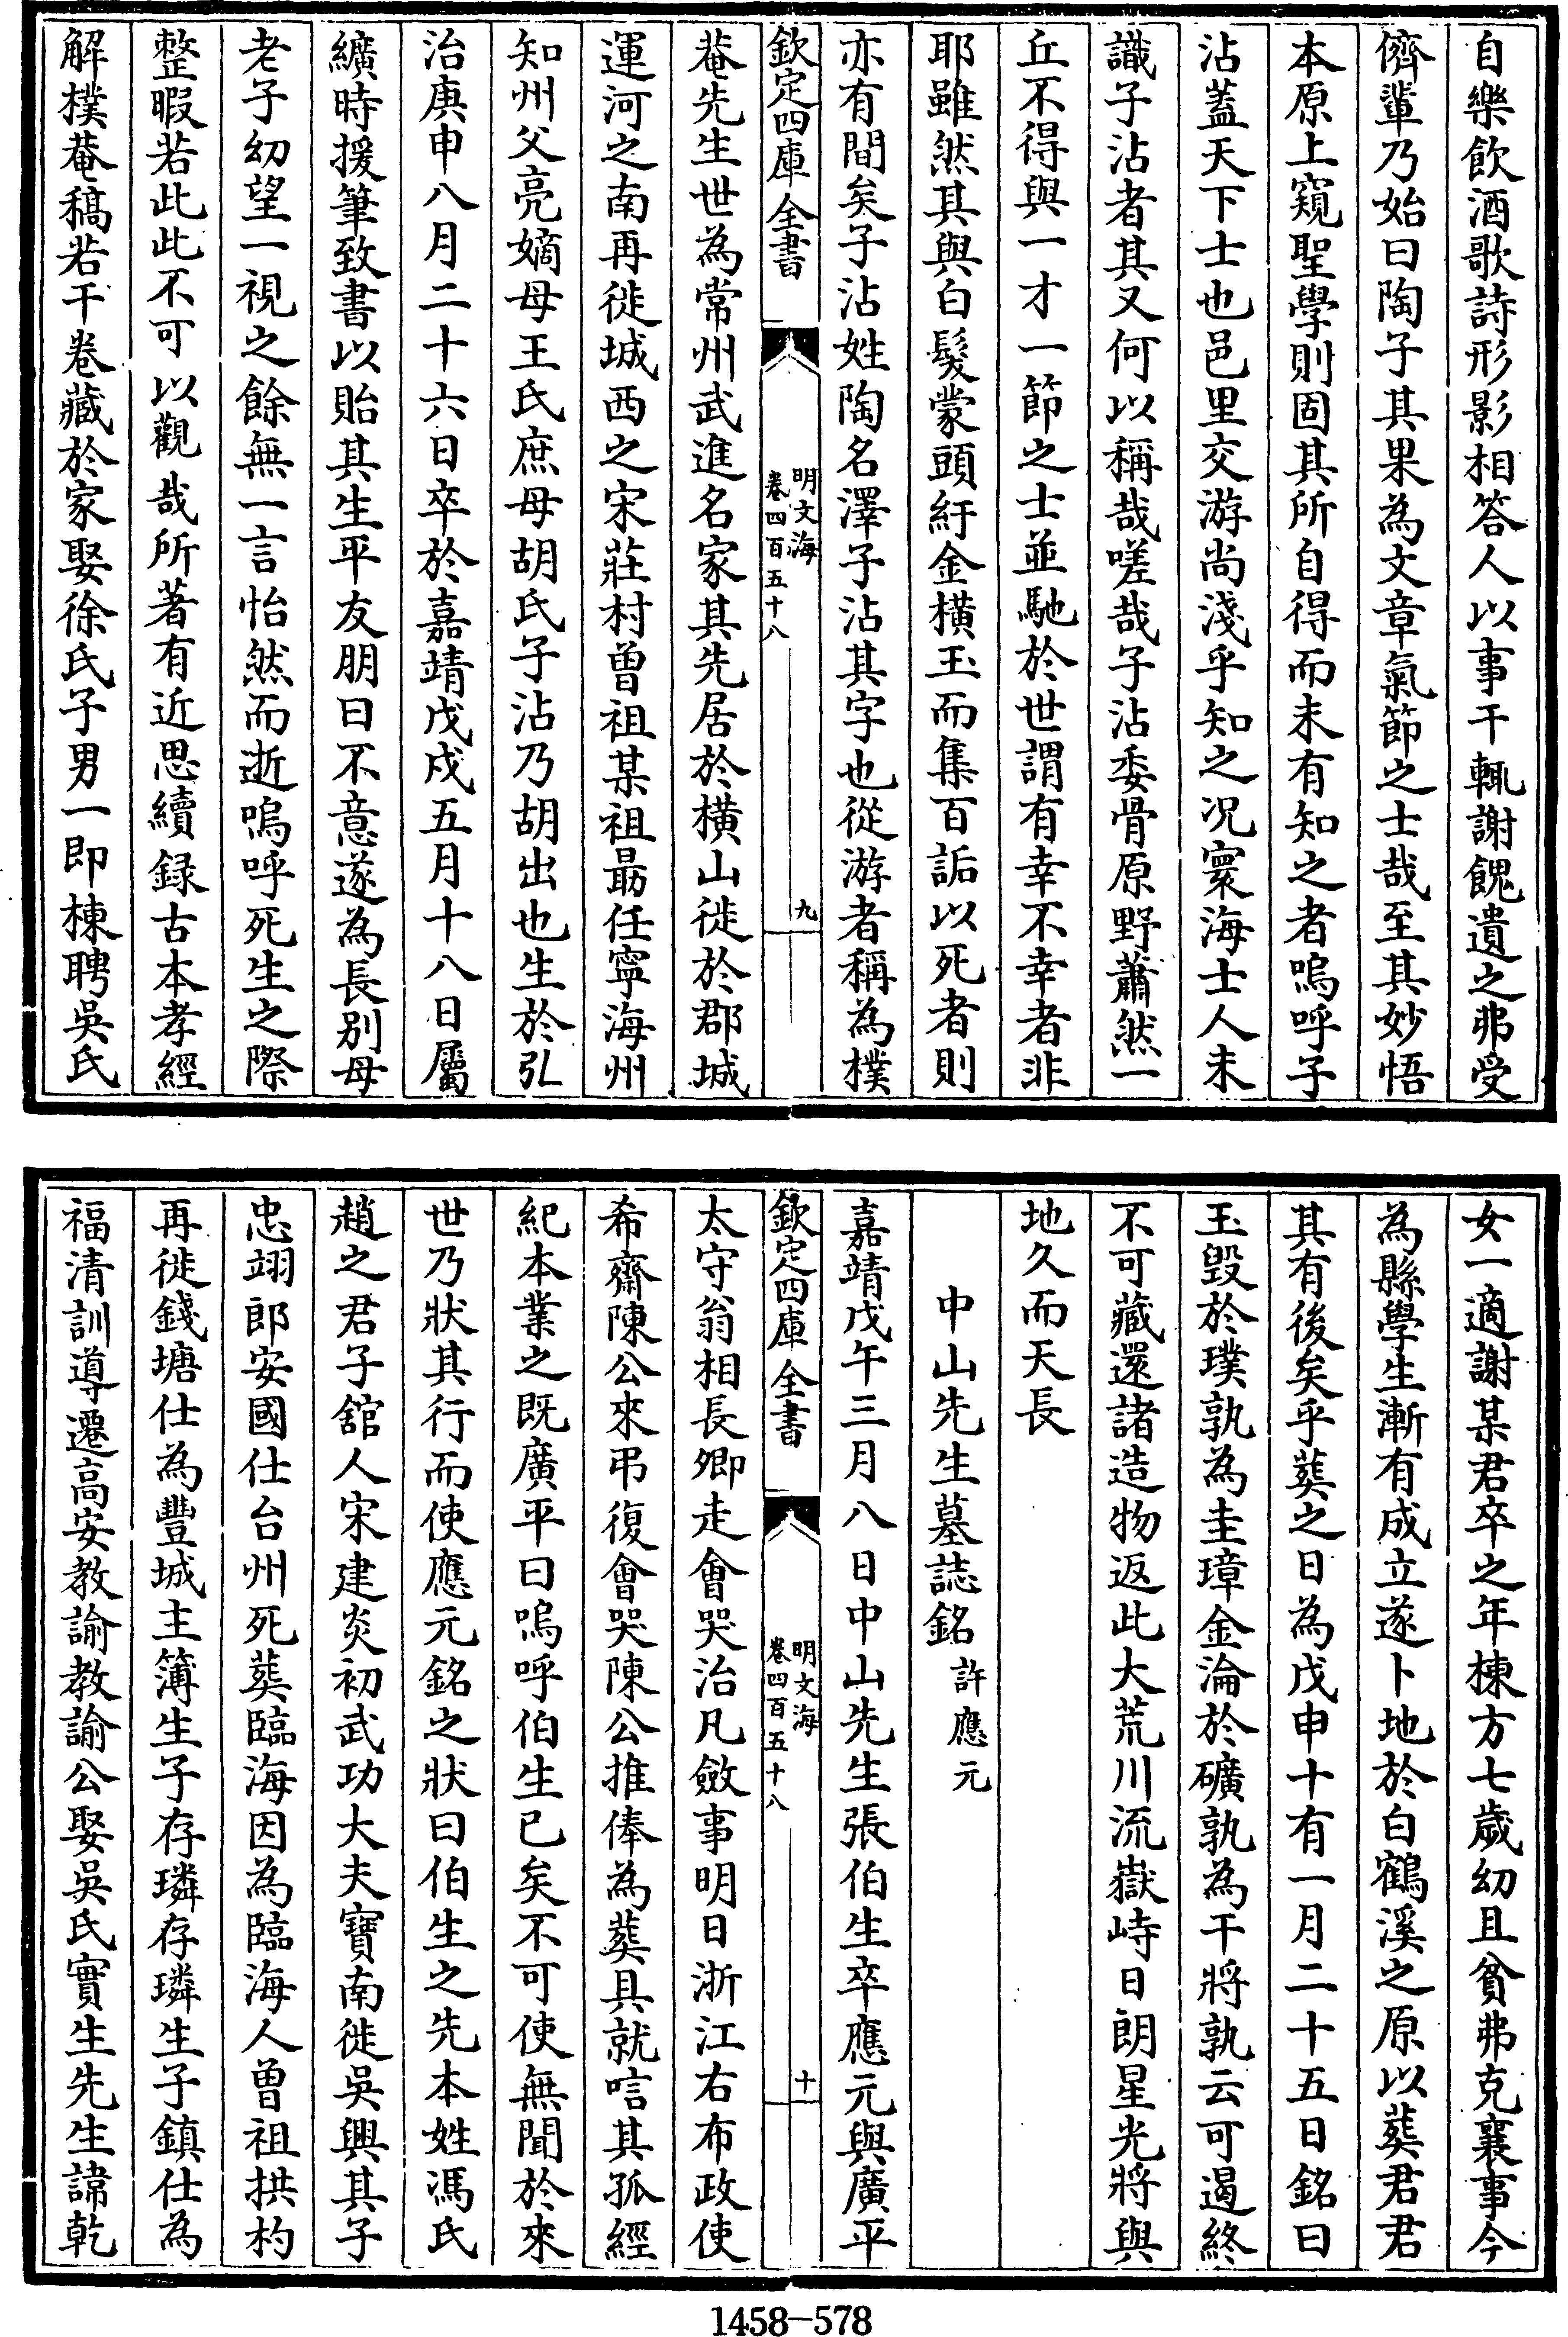 自樂飲酒歌詩形影相答人以事干輒謝餽遺之弗受
儕輩乃始曰陶子其果為文章氣節之士哉至其妙悟
本原上窺聖學則固其所自得而未有知之者嗚呼子
沾蓋天下士也邑里交游尚淺乎知之况寰海士人未
識子沾者其又何以稱哉嗟哉子沾委骨原野蕭然一
丘不得與一才一節之士並馳於世謂有幸不幸者非
耶雖然其與白髮蒙頭紆金橫玉而集百詬以死者則
亦有間矣子沾姓陶名澤子沾其字也從游者稱為樸
欽定四庫全書
明文海
卷四百五十八
九
菴先生世為常州武進名家其先居於橫山徙於郡城
運河之南再徙城西之宋莊村曾祖某祖最任寧海州
知州父亮嫡母王氏庶母胡氏子沾乃胡出也生於弘
治庚申八月二十六日卒於嘉靖戊戌五月十八日屬
纊時援筆致書以貽其生平友朋曰不意遂為長別母
老子幼望一視之餘無一言怡然而逝嗚呼死生之際
整暇若此此不可以觀哉所著有近思續録古本孝經
解樸菴稿若干卷藏於家娶徐氏子男一即棟聘吳氏
女一適謝某君卒之年棟方七歲幼且貧弗克襄事今
為縣學生漸有成立遂卜地於白鶴溪之原以葬君君
其有後矣乎葬之日為戊申十有一月二十五日銘曰
玉毀於璞孰為圭璋金淪於礦孰為干將孰云可遏終
不可藏還諸造物返此大荒川流嶽峙日朗星光將與
地久而天長
中山先生墓誌銘 許應元
嘉靖戊午三月八日中山先生張伯生卒應元與廣平
欽定四庫全書
明文海
卷四百五十八
十
太守翁相長卿走會哭治凡斂事明日浙江右布政使
希齋陳公來弔復會哭陳公推俸為葬具就唁其孤經
紀本業之既廣平曰嗚呼伯生已矣不可使無聞於來
世乃狀其行而使應元銘之狀曰伯生之先本姓馮氏
趙之君子舘人宋建炎初武功大夫寶南徙吳興其子
忠翊郎安國仕台州死葬臨海因為臨海人曾祖拱杓
再徙錢塘仕為豐城主簿生子存璘存璘生子鎮仕為
福清訓導遷高安教諭教諭公娶吳氏實生先生諱乾
1458-578